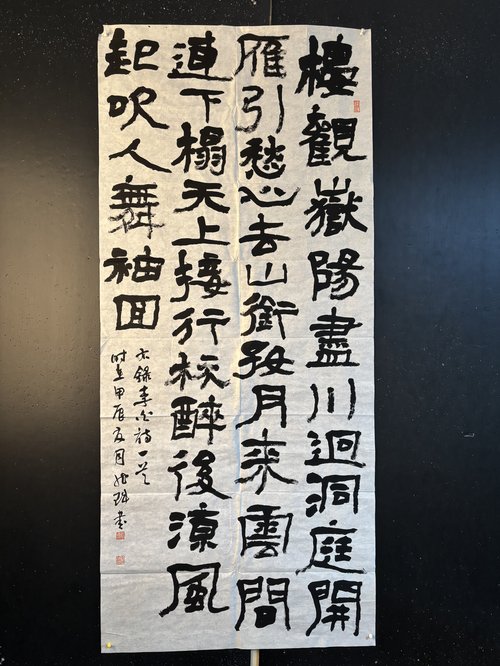 樓觀嶽陽盡川迥洞庭開
雁引愁心去山銜好月来雲間
連下榻天上接行杯醉後涼風
起吹人舞袖回
录李白诗一首
时在甲辰夏月书